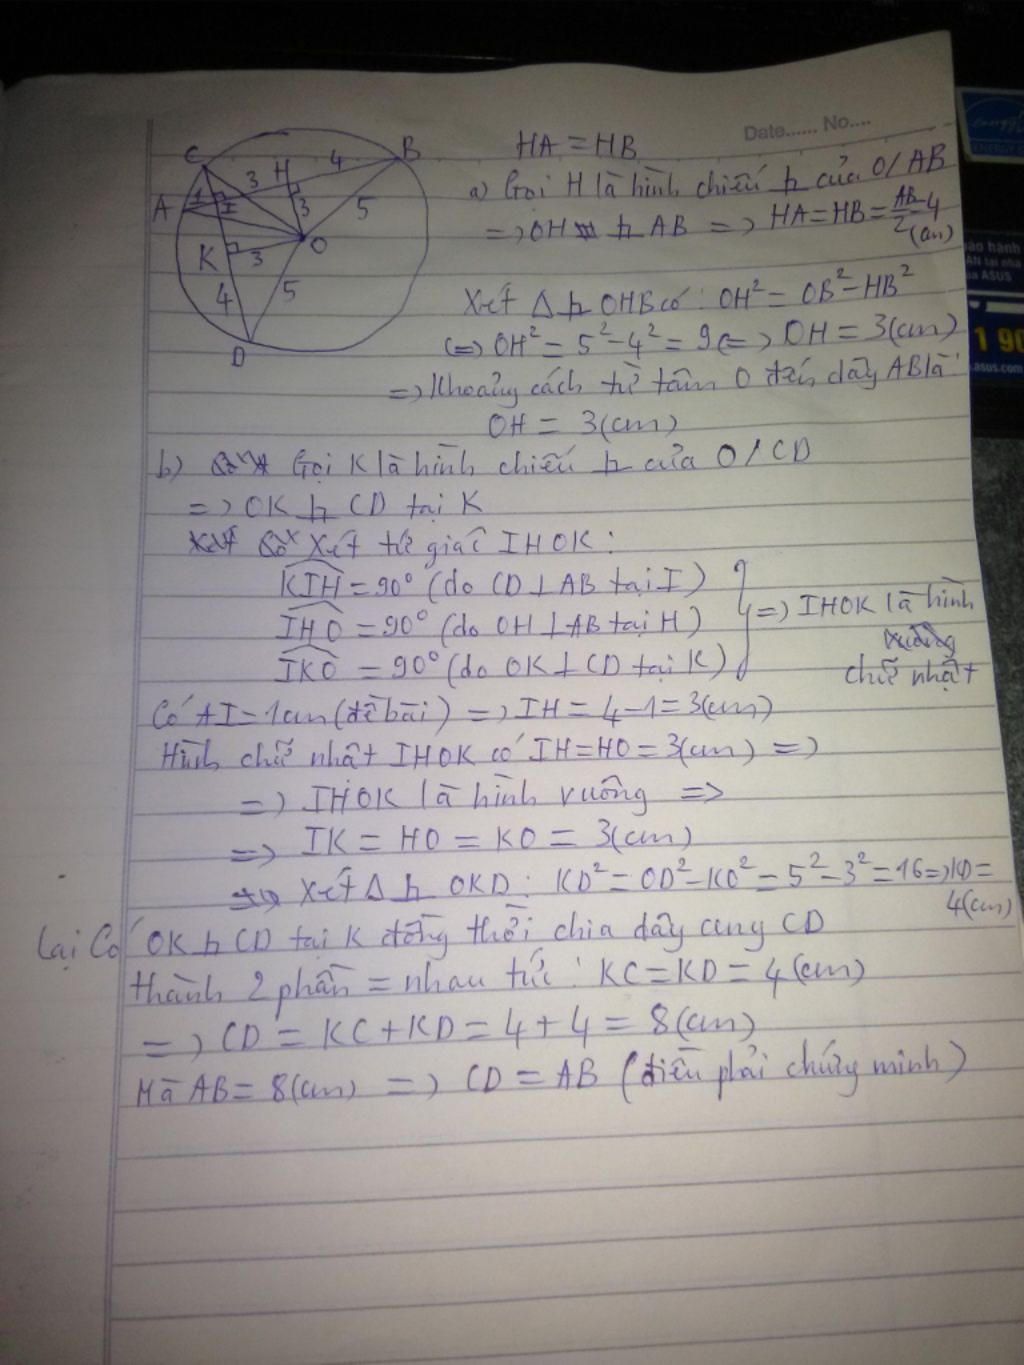 Date...... No....
C H 4 B
3
A 1 I 3 5
O
K 3
4 5
D
HA = HB
a) Gọi H là hình chiếu ⊥ của O / AB
=> OH ⊥ AB => HA = HB = AB/2 = 4 (cm)
Xét Δ ⊥ OHB có: OH² = OB² - HB²
(=) OH² = 5² - 4² = 9 (=) OH = 3(cm)
=> Khoảng cách từ tâm O đến dây AB là:
OH = 3(cm)
b) Gọi K là hình chiếu ⊥ của O / CD
=> OK ⊥ CD tại K
Xét tứ giác IHOK:
KIH = 90° (do CD ⊥ AB tại I)
IHO = 90° (do OH ⊥ AB tại H)
IKO = 90° (do OK ⊥ CD tại K)
=> IHOK là hình
chữ nhật
Có AI = 1cm (đề bài) => IH = 4-1 = 3(cm)
Hình chữ nhật IHOK có IH = HO = 3(cm) =>
=> IHOK là hình vuông =>
=> IK = HO = KO = 3(cm)
Xét Δ ⊥ OKD: KD² = OD² - KO² = 5² - 3² = 16 => KD =
4(cm)
Lại Có OK ⊥ CD tại K đồng thời chia dây cung CD
thành 2 phần = nhau tức: KC = KD = 4(cm)
=> CD = KC + KD = 4 + 4 = 8(cm)
Mà AB = 8(cm) => CD = AB (điều phải chứng minh)
ENERGY
bảo hành
ẬN tại nhà
ủa ASUS
1 90
.asus.com